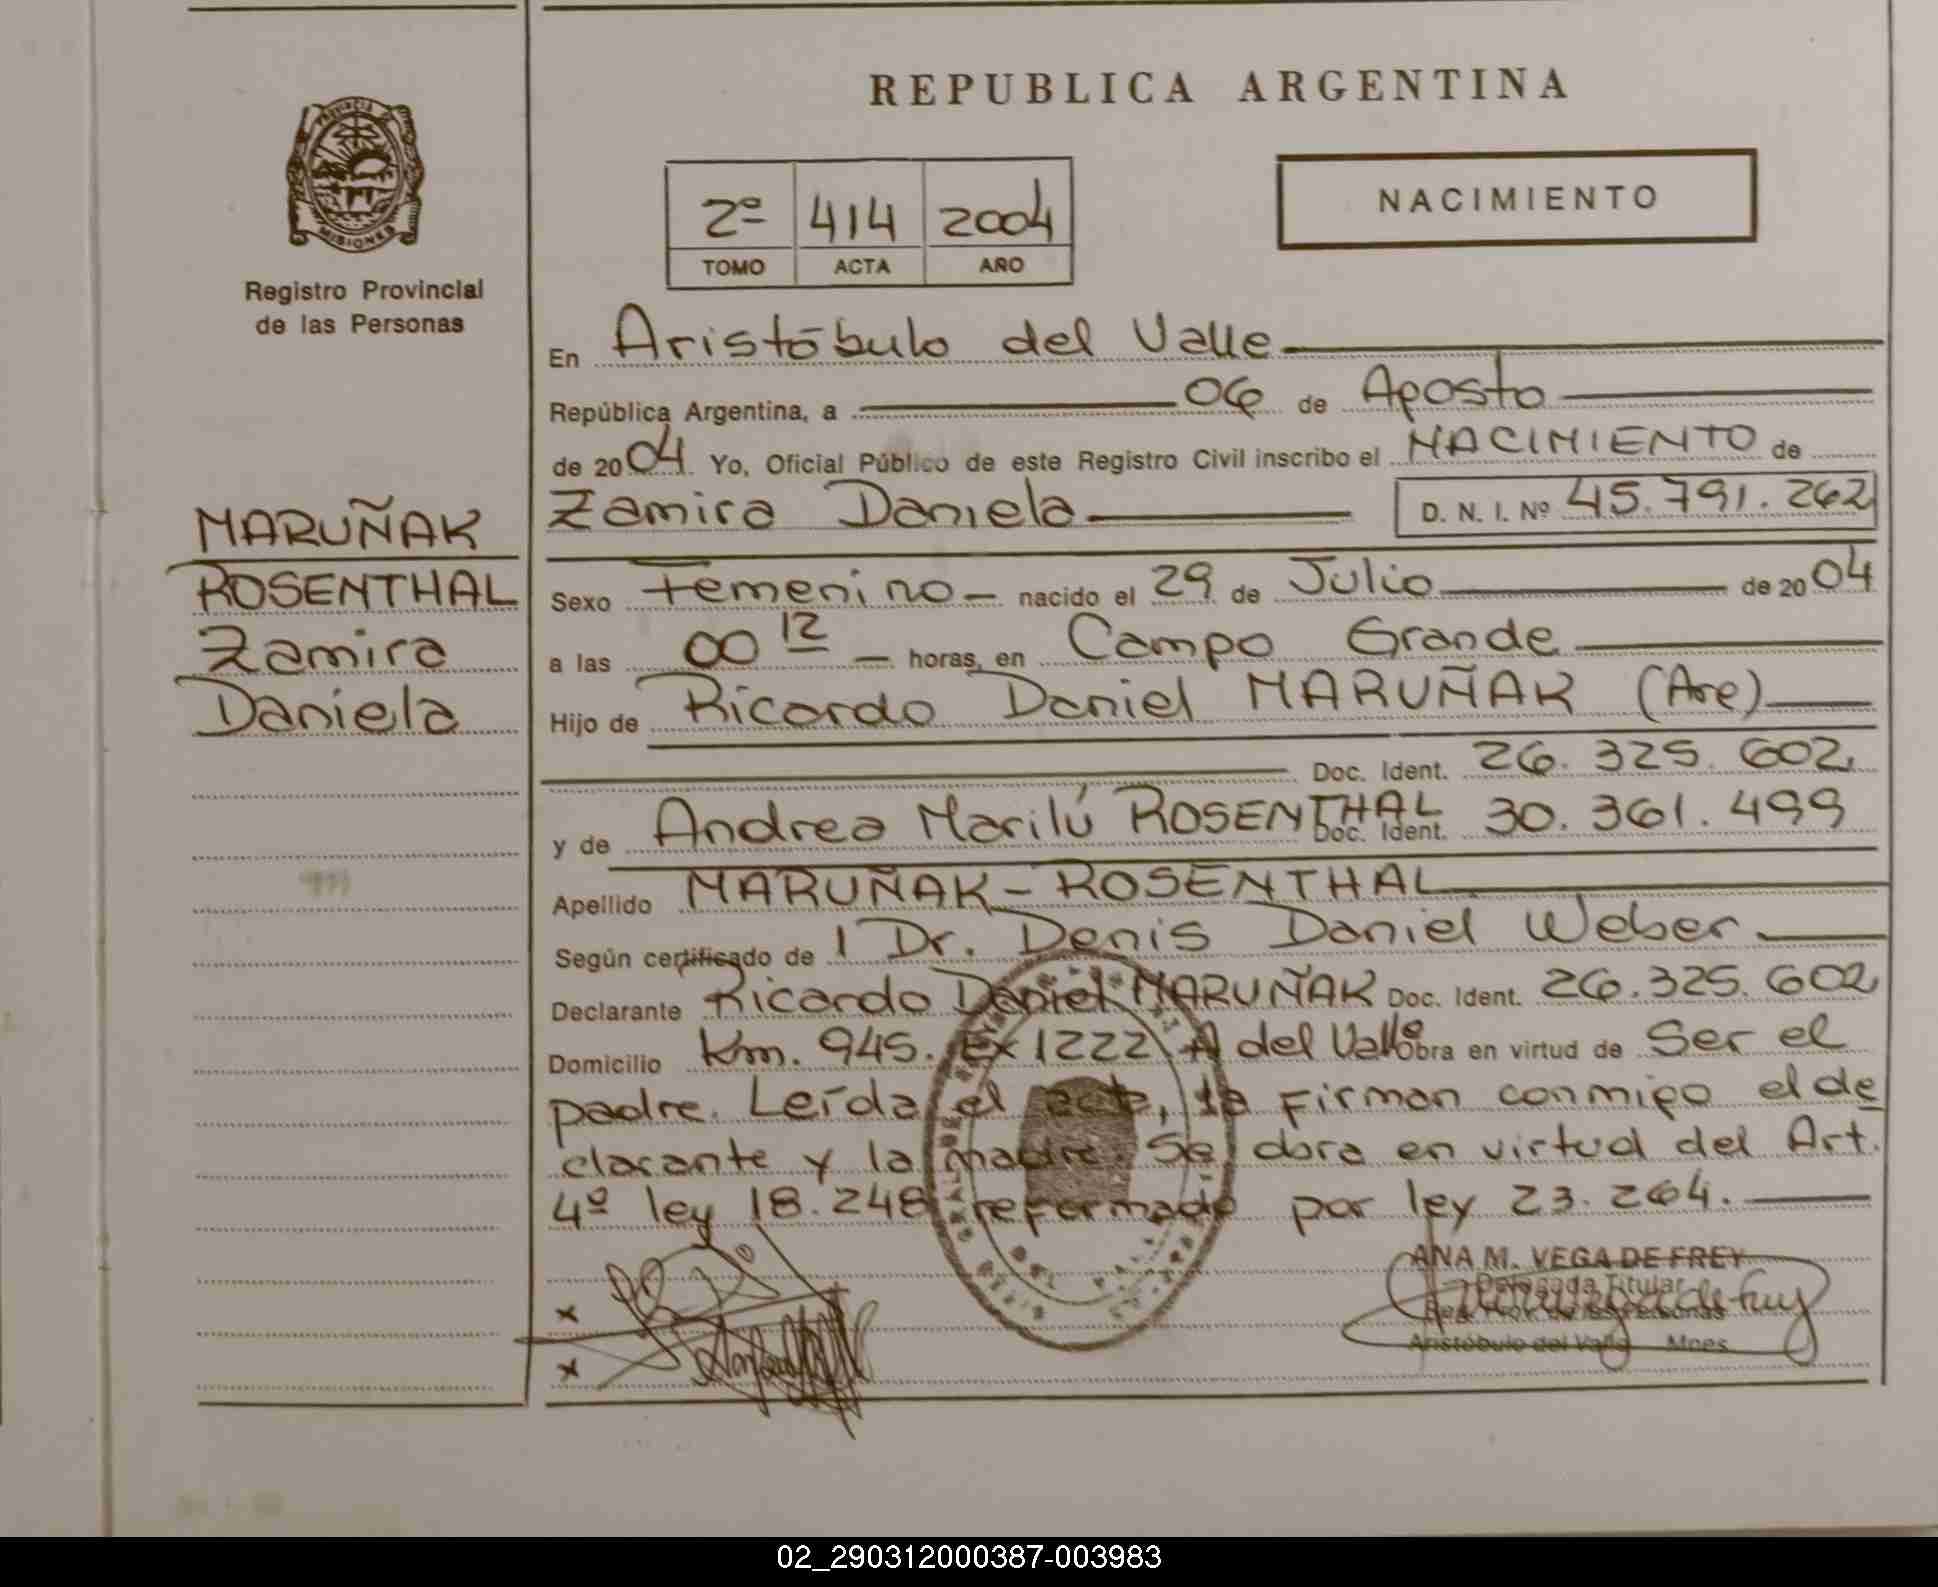 REPUBLICA ARGENTINA
PROVINCIA DE
MISIONES
Registro Provincial
de las Personas
2º 414 2004
TOMO ACTA AÑO
NACIMIENTO
MARUÑAK
ROSENTHAL
Zamira
Daniela
En Aristóbulo del Valle
República Argentina, a 06 de Agosto
de 2004. Yo, Oficial Público de este Registro Civil inscribo el NACIMIENTO de
Zamira Daniela D. N. I. Nº 45.791.262
Sexo Femenino nacido el 29 de Julio de 2004
a las 00 12 horas, en Campo Grande
Hijo de Ricardo Daniel MARUÑAK (Are)
Doc. Ident. 26.325.602
y de Andrea Marilú ROSENTHAL Doc. Ident. 30.361.499
Apellido MARUÑAK - ROSENTHAL
Según certificado de 1 Dr. Denis Daniel Weber
Declarante Ricardo Daniel MARUÑAK Doc. Ident. 26.325.602
Domicilio Km. 945. Ex 1222 A del Valle Obra en virtud de Ser el
padre. Leída el acta, la firman conmigo el de
clarante y la madre. Se obra en virtud del Art.
4º ley 18.248 reformado por ley 23.264.
ANA M. VEGA DE FREY
Delegada Titular
Reg. Prov. de las Personas
Aristóbulo del Valle Mnes
02_290312000387-003983